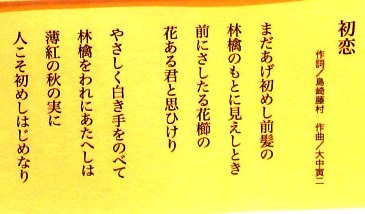 初恋
作詞／島崎藤村　作曲／大中寅二
まだあげ初めし前髪の
林檎のもとに見えしとき
前にさしたる花櫛の
花ある君と思ひけり
やさしく白き手をのべて
林檎をわれにあたへしは
薄紅の秋の実に
人こそ初めしはじめなり